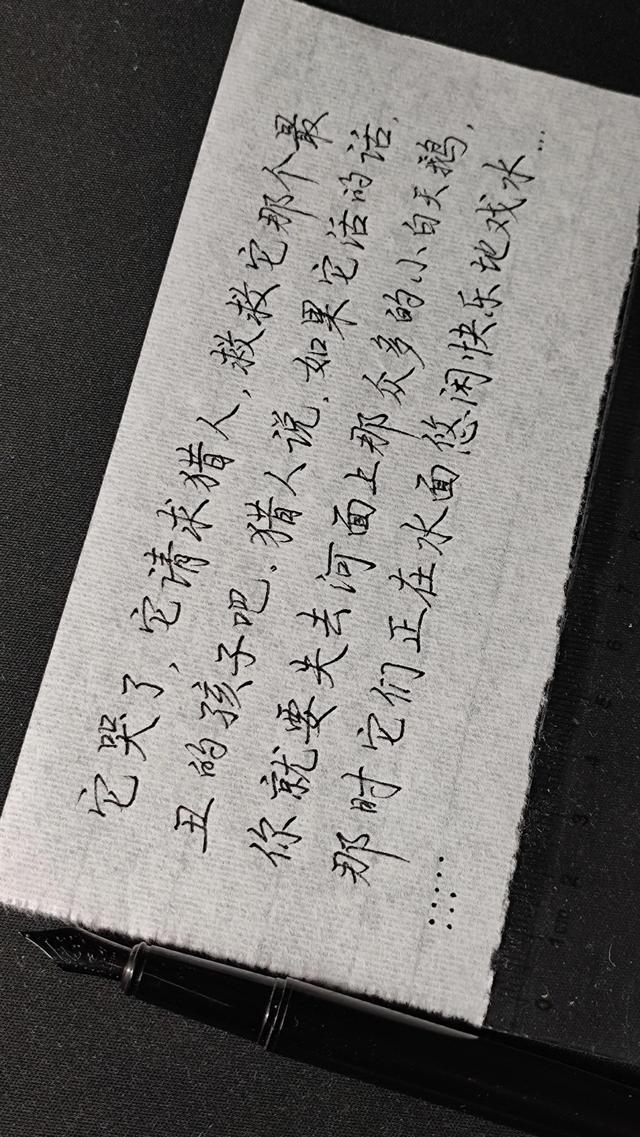 它哭了，它请求猎人，救救它那个最
丑的孩子吧。猎人说，如果它活的话，
你就要失去河面上那众多的小白天鹅，
那时它们正在水面悠闲快乐地戏水…
……
0 1cm 2 3 4 5 6 7 8